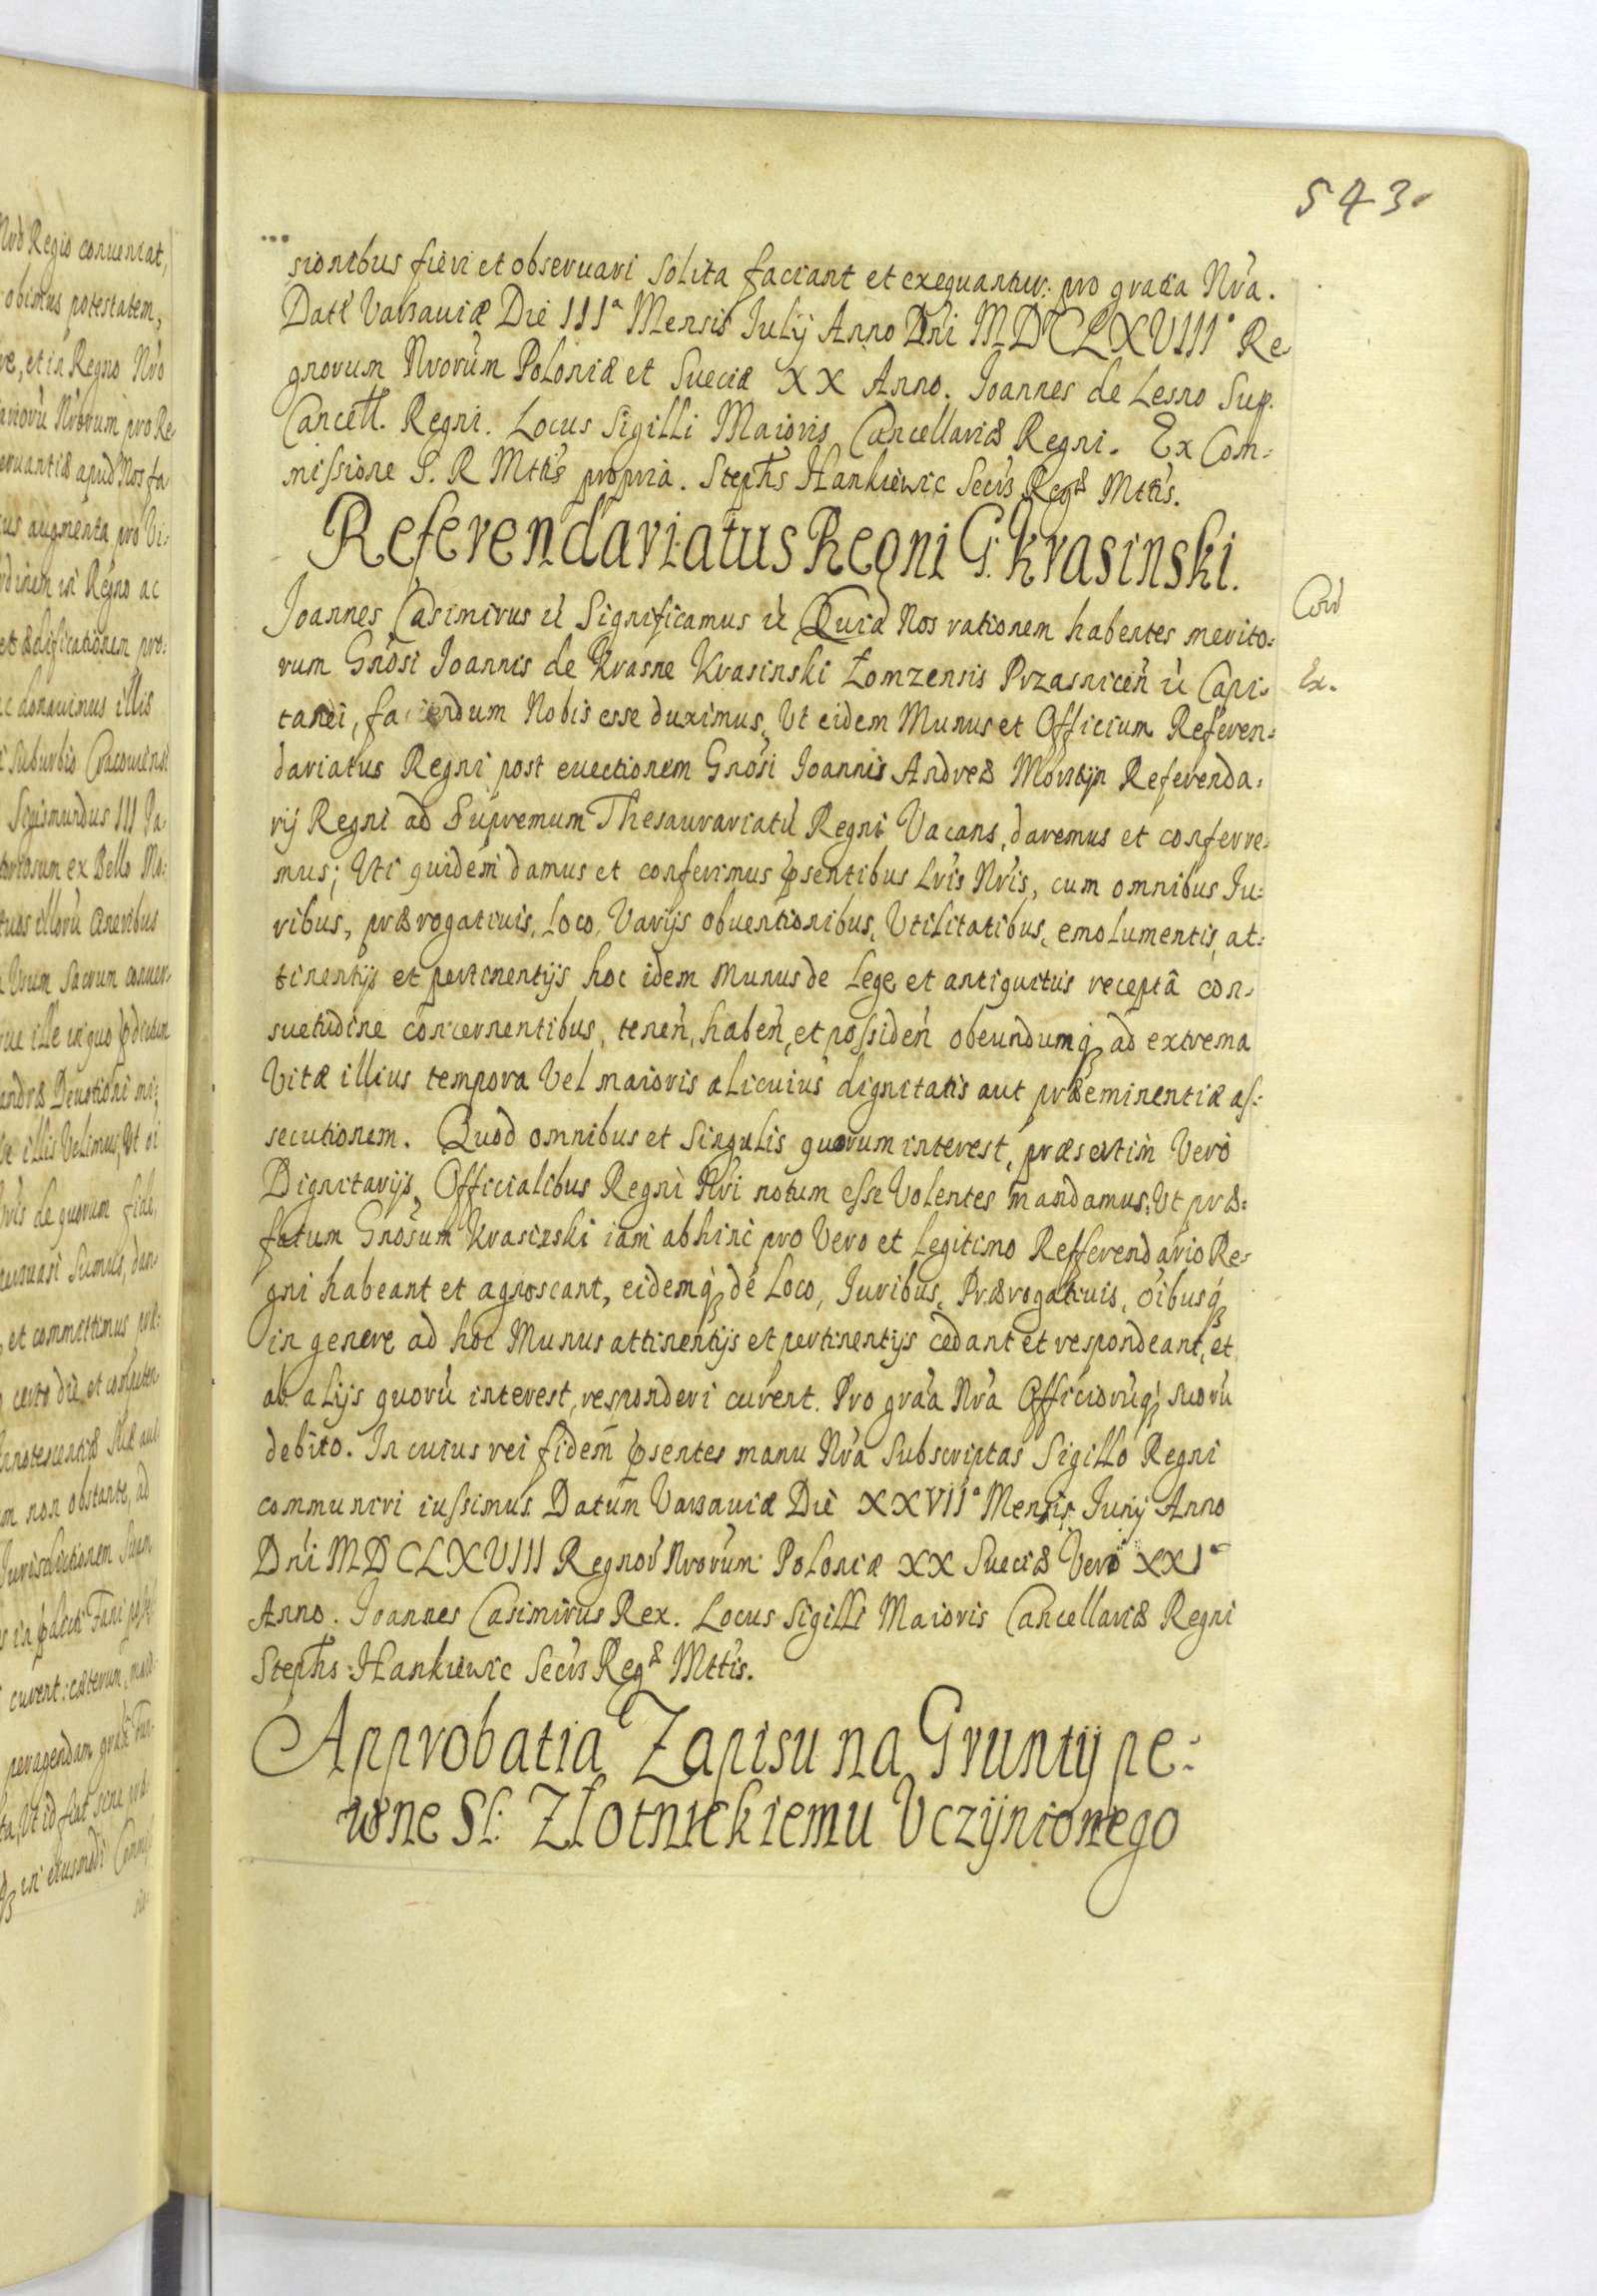 543.
sionibus fieri et obseruari solita faciant et exequantur: pro gratia Nra.
Datt Varsauiæ Die IIIa Mensis Julij Anno Dni MDCLXVIII° Re-
gnorum Nrorum Poloniæ et Sueciæ XX Anno. Joannes de Lesno Sup.
Cancell. Regni. Locus Sigilli Maioris Cancellariæ Regni. Ex Com-
missione S. R Mttis propria. Stephs Hankiewic Secrs Regæ Mttis.
Referendariatus Regni G. Krasinski.
Joannes Casimirus etc Significamus etc Quia Nos rationem habentes merito=
rum Gnosi Joannis de Krasne Krasinski Łomzensis Przasnicen etc Capi-
tanei, faciendum Nobis esse duximus, Ut eidem Munus et Officium Referen=
dariatus Regni post euectionem Gnosi Joannis Andreæ Morstijn Referenda=
rij Regni ad Supremum Thesaurariatu Regni Vacans, daremus et conferre-
mus; Uti quidem damus et conferimus psentibus Lris Nris, cum omnibus Ju=
ribus, prærogatiuis, Loco, Varijs obuentionibus, Utilitatibus, emolumentis, at=
tinentijs et pertinentijs hoc idem Munus de Lege et antiquitus receptâ con-
suetudine concernentibus, tenen, haben, et possiden obeundumq ad extrema
Vitæ illius tempora Vel maioris alicuius dignitatis aut præeminentiæ as=
secutionem. Quod omnibus et Singulis quorum interest, præsertim Vero
Dignitarijs, Officialibus Regni Nri notum esse Volentes mandamus, Ut præ=
fatum Gnosum Krasinski iam abhinc pro Vero et Legitimo Refferendario Re-
gni habeant et agnoscant, eidemq de Loco, Juribus, Prærogatiuis, oibusq
in genere ad hoc Munus attinentijs et pertinentijs cedant et respondeant, et
ab alijs quoru interest, responderi curent. Pro graa Nra Officioruq suoru
debito. In cuius rei fidem psentes manu Nra Subscriptas Sigillo Regni
communiri iussimus. Datum Varsauiæ Die XXVIIa Mensis Junij Anno
Dni MDCLXVIII Regnor Nrorum Poloniæ XX Sueciæ Vero XXIo
Anno. Joannes Casimirus Rex. Locus Sigilli Maioris Cancellariæ Regni
Stephs Hankiewic Secrs Regæ Mttis.
Approbatia Zapisu na Gruntÿ pe=
wne Sl: Złotnickiemu Uczÿnionego